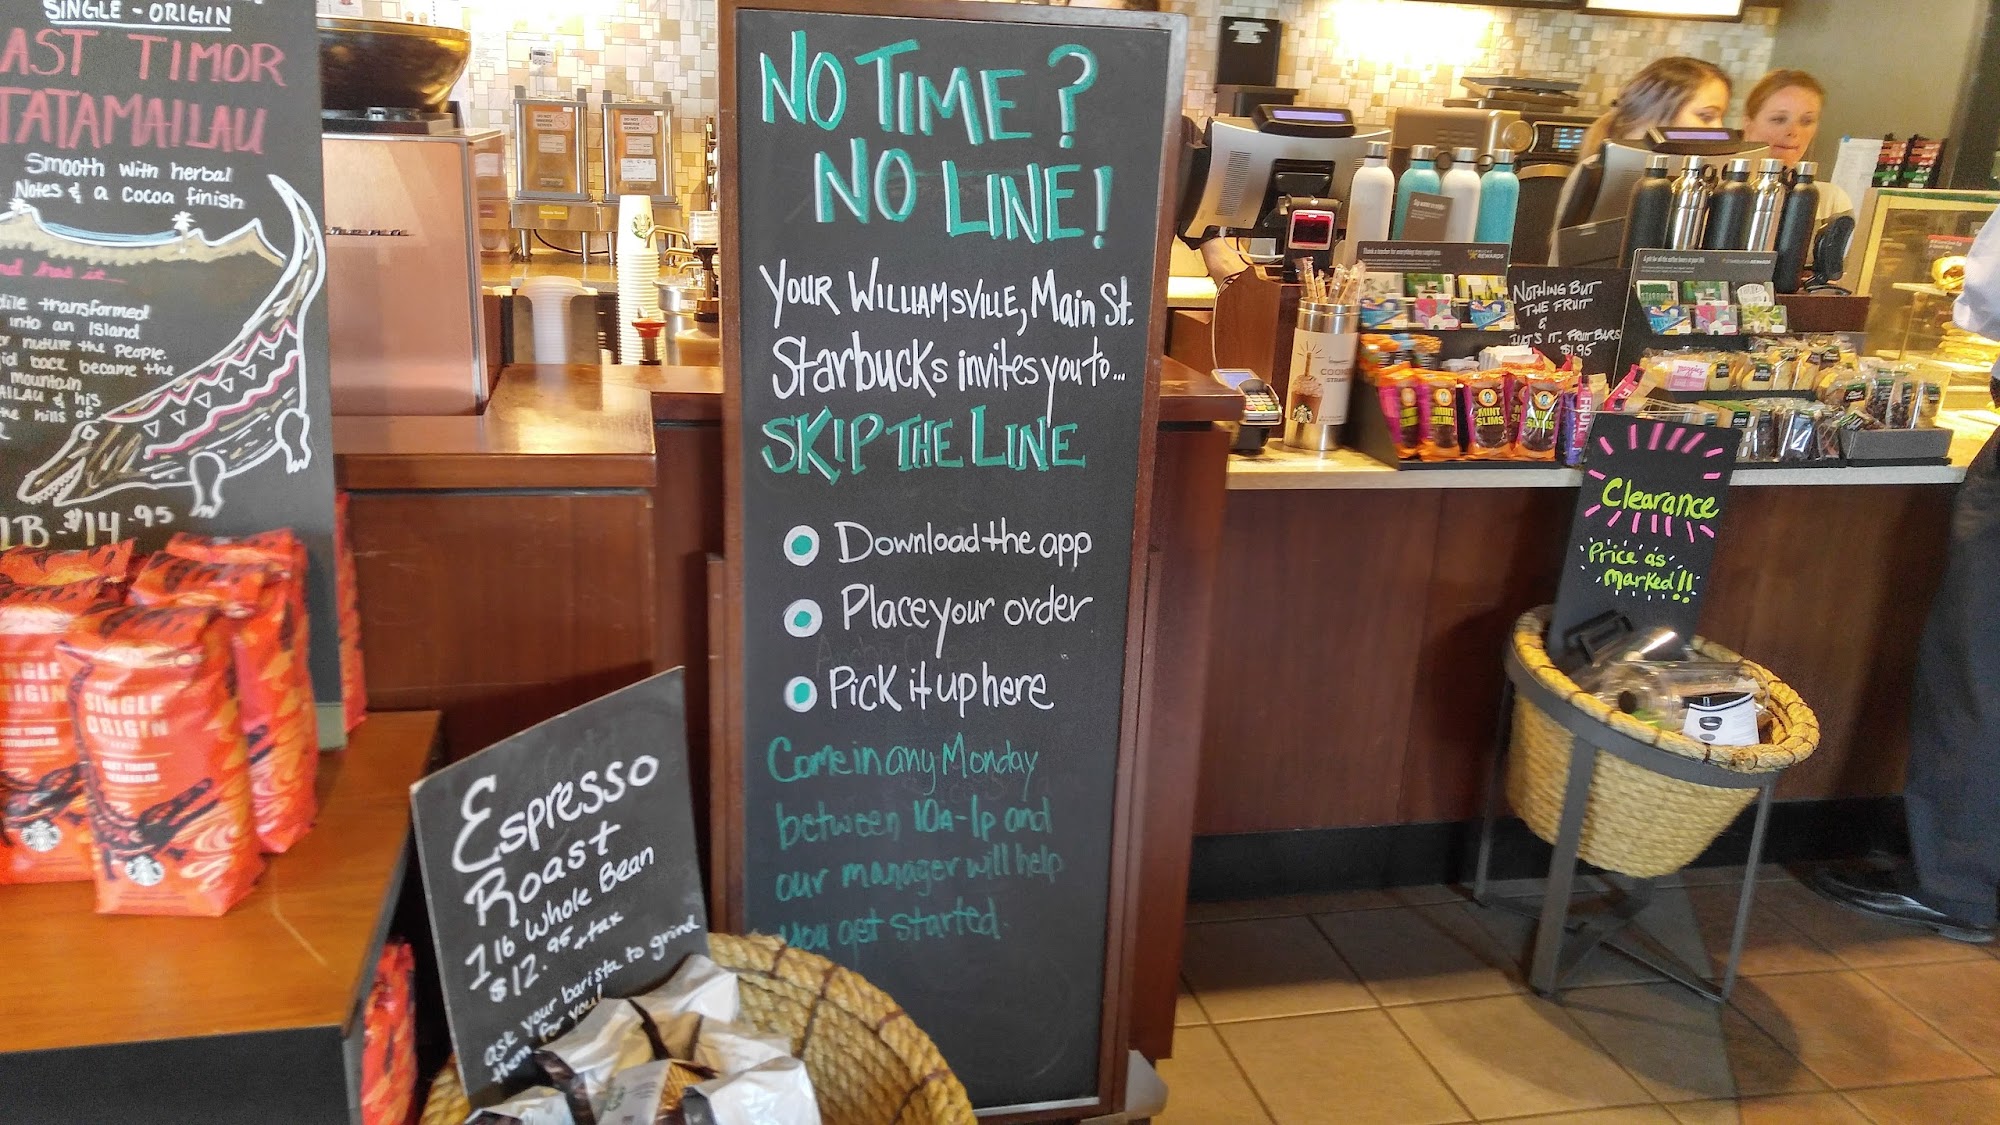 SINGLE-ORIGIN
AST TIMOR
TATAMAILAU
Smooth with herbal
Notes & a cocoa finish
transformed
into an island
nurture the people.
back became the
mountain
& his
hills of
LB-$14.95
SINGLE
ORIGIN
EAST TIMOR
TATAMAILAU
Espresso
Roast
1 lb Whole Bean
$12.95 +tax
ask your barista to grind
them for you!
NO TIME?
NO LINE!
YOUR WILLIAMSVILLE, Main St.
Starbucks invites you to...
SKIP THE LINE
Download the app
Place your order
Pick it up here
Come in any Monday
between 10A-1P and
our manager will help
you get started.
NOTHING BUT
THE FRUIT
&
THAT'S IT. FRUIT BARS
$1.95
REWARDS
MINT
SLIMS
MINT
SLIMS
MINT
SLIMS
Clearance
Price as
marked!!